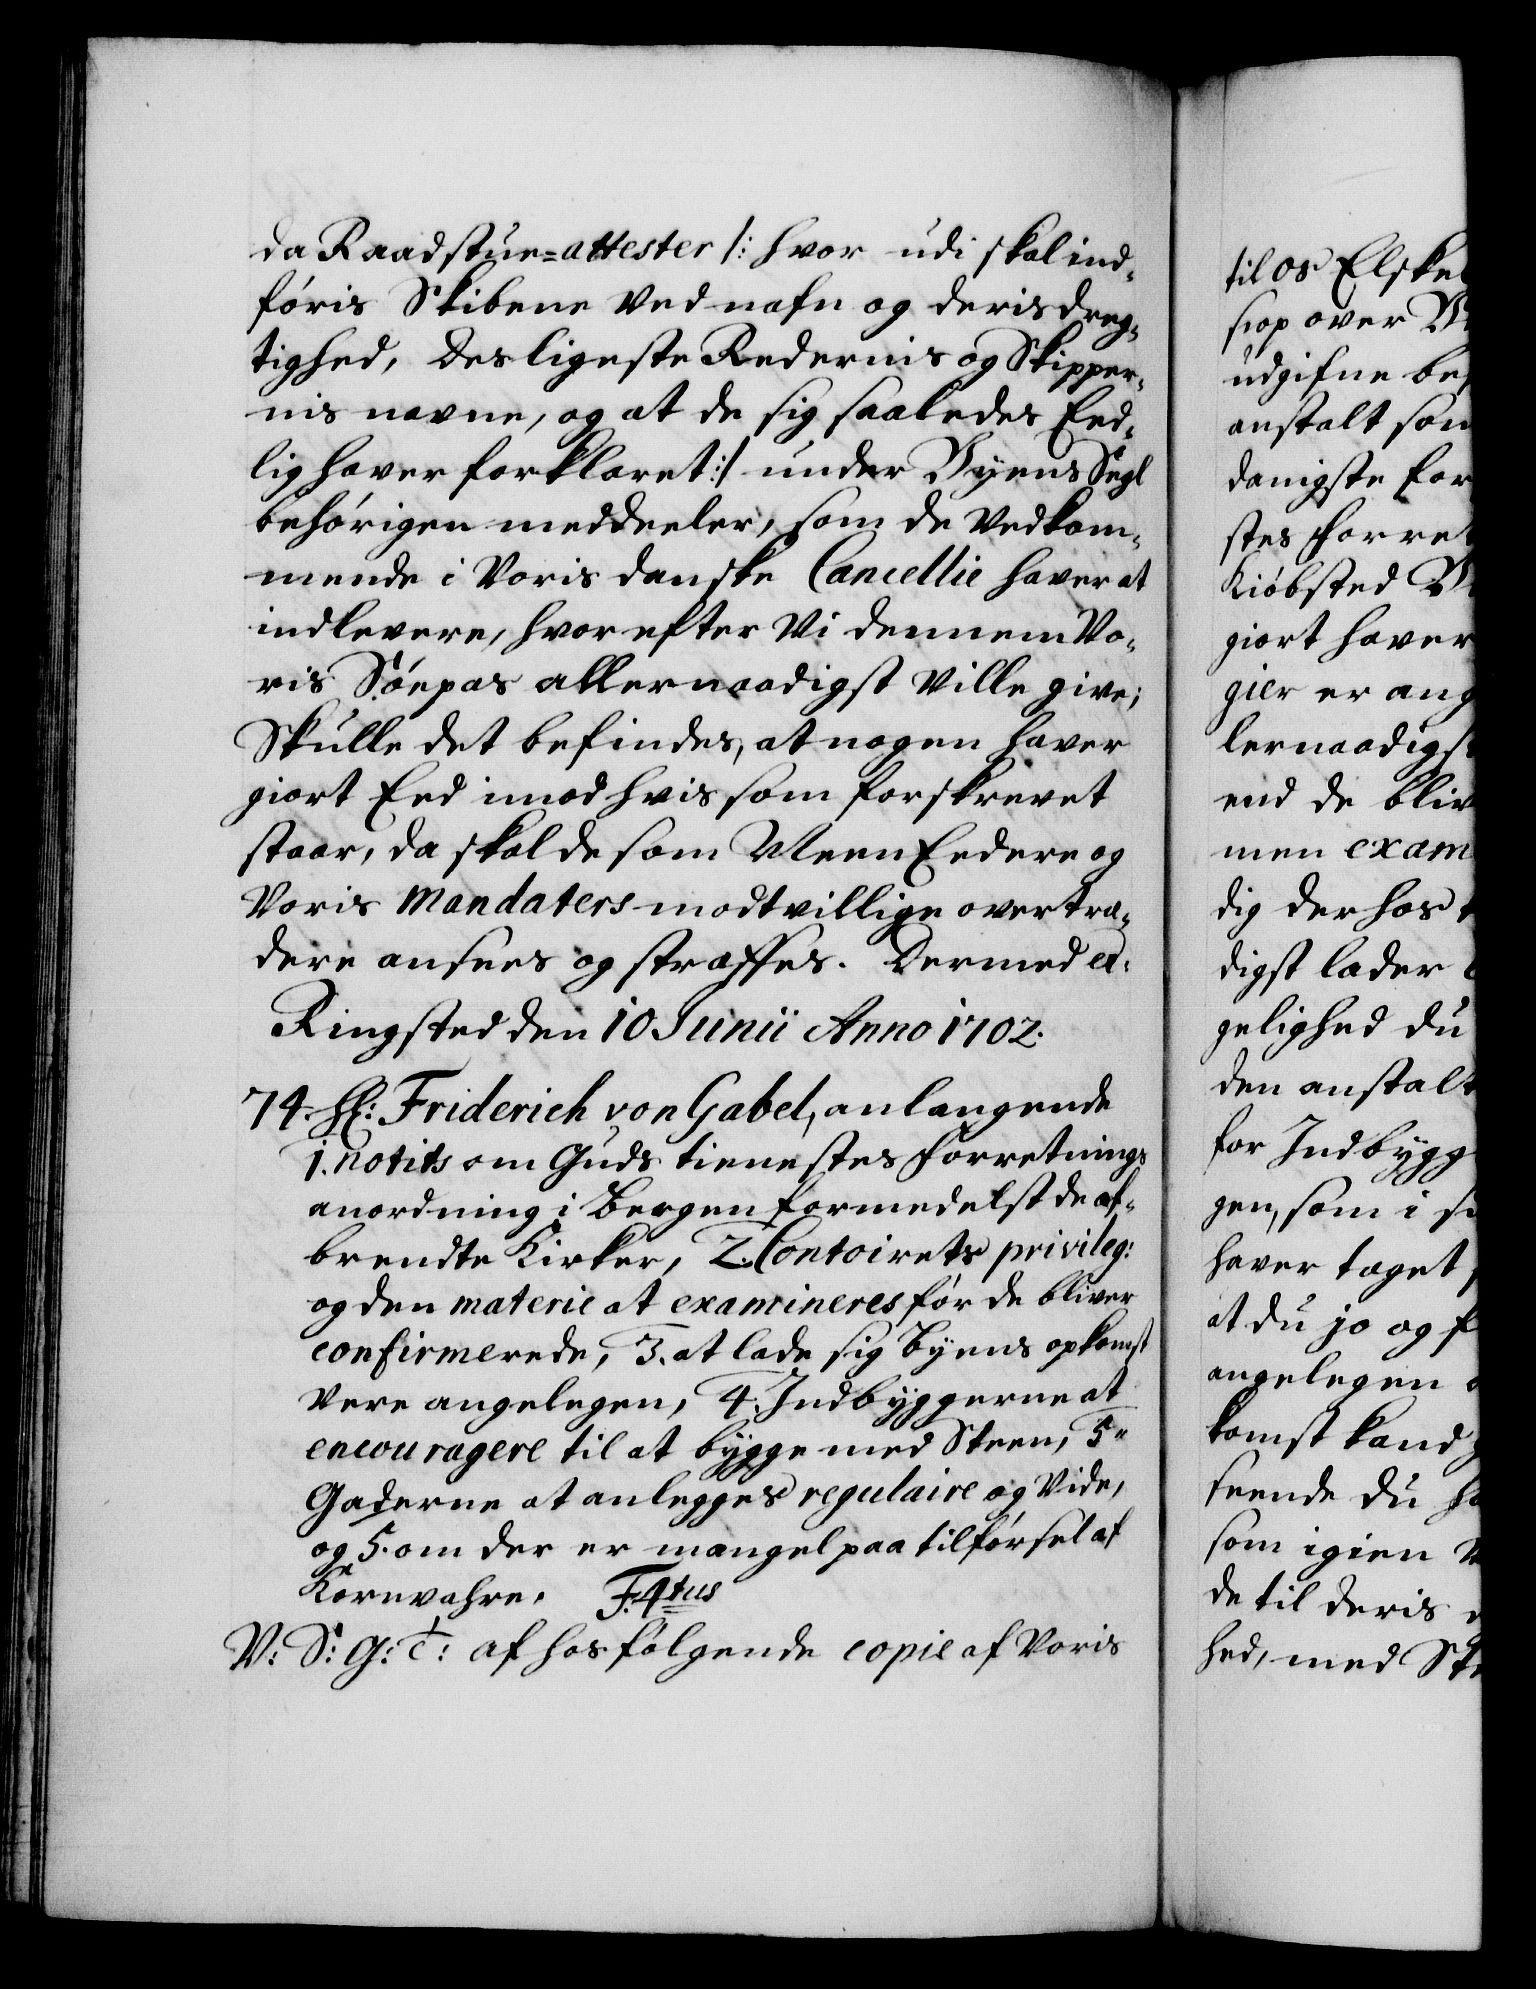 da Raadstue=attester /: hvor udi skal ind-
føris Skibene Ved nafn og deris dreg-
tighed, desligeste Redernis og Skipper-
nis navne, og at de sig saaledes Eed-
lig haver forklaret :/ under Byens Segl
behørigen meddeeler, som de Vedkom-
mende i Voris danske Cancellie haver at
indlevere, hvorefter Vi dennem Vo-
ris Søepas allernaadigst Ville give;
Skulle det befindes, at nogen haver
giort Eed imod hvis som forskrevet
staar, da skal de som Meen Eedere og
Voris Mandaters modtvillige overtræ-
dere ansees og straffes. Dermed et.
Ringsted den 10 Junii Anno 1702.
74. Hr: Friderich von Gabel, anlangende
1. notits om Guds tienestes forretnings
anordning i Bergen formedelst de af-
brendte Kirker, 2. Contoirets privileg:
og den materie at examineres før de bliver
confirmerede, 3. at lade sig Byens opkomst
Vere angelegen, 4. Indbyggerne at
encouragere til at bygge med Steen, 5.
Gaderne at anlegges regulaire og Vide,
og 5. om der er mangel paa tilførsel af
Kornvahre. F. 4tus
V: S: G: T: af hosfølgende copie af Voris
til os Elske
siop over
udgifne be
anstalt som
danigste for
stes forret
Kiøbsted
giort haver
gier er ang
lernaadigst
end de bliv
men exam
dig derhos
digst lader
gelighed du
den anstalt
for Indbygg
gen, som i
haver taget
at du jo og
angelegen
komst kand
seende du
som igien
de til deris
hed, med Ste